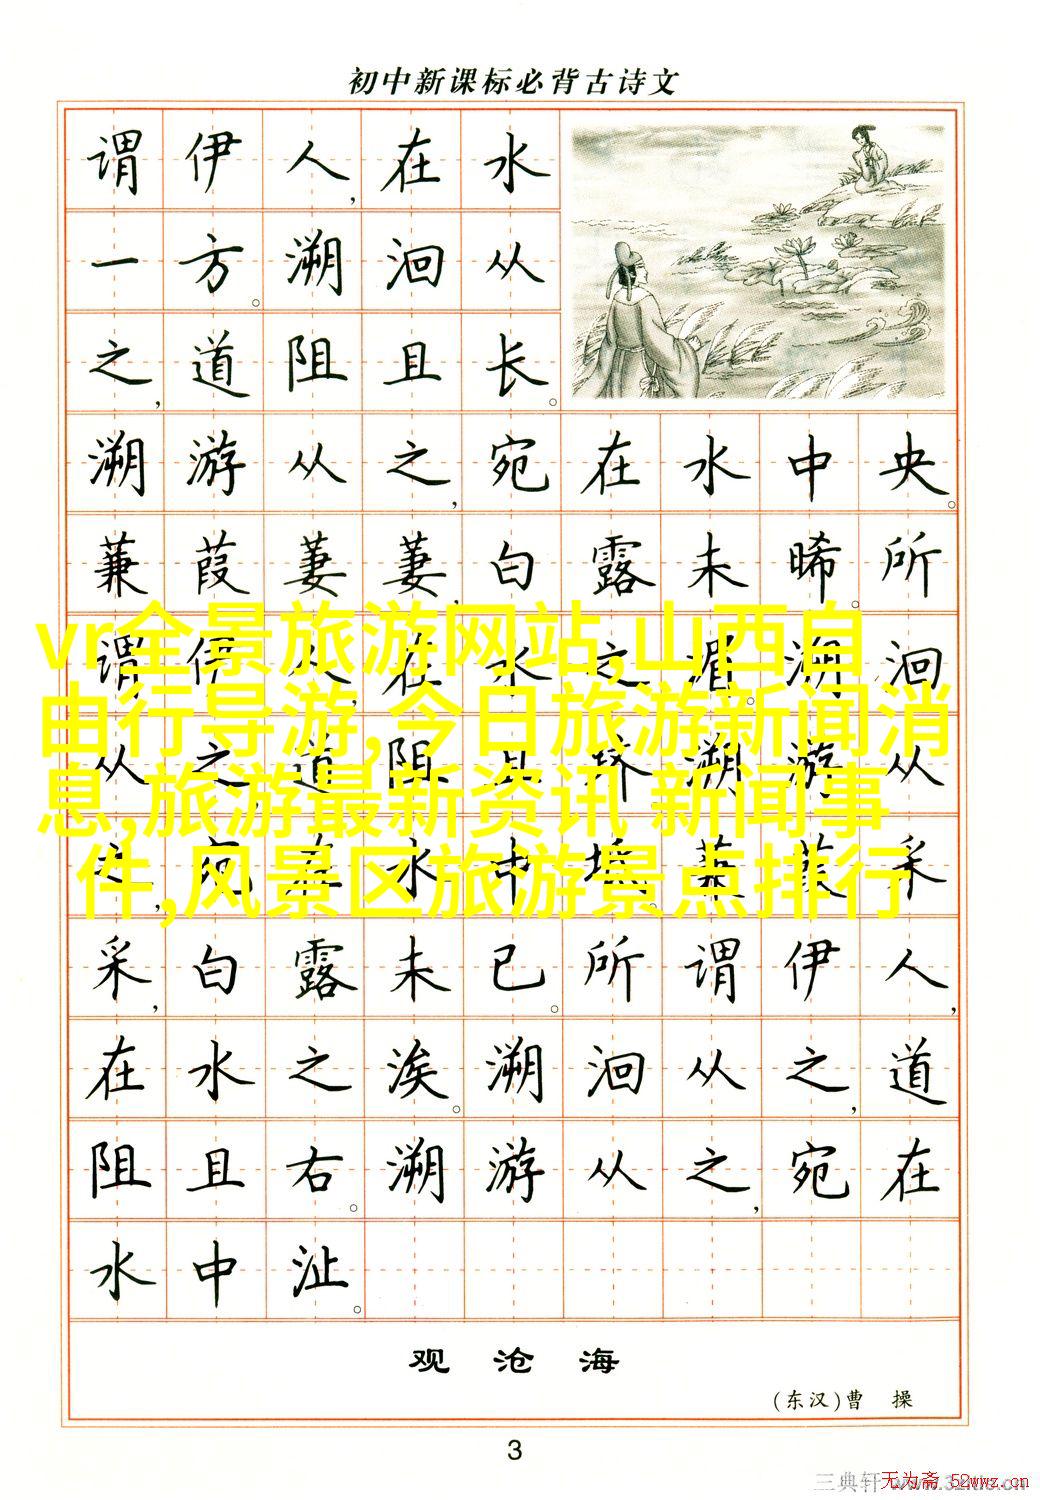 初中新课标必背古诗文
谓伊人,在水
一方。溯洄从
之,道阻且长。
溯游从之,宛在水中央。
蒹葭萋萋,白露未晞。所
谓伊人,在水之湄。溯洄
vr全景旅游网站,山西自
由行导游,今日旅游新闻消
息,旅游最新资讯 新闻事
件,风景区旅游景点排行
从之,道阻且跻。溯游从
之,宛在水中坻。蒹葭采
采,白露未已。所谓伊人,
在水之涘。溯洄从之,道
阻且右。溯游从之,宛在
水中沚。
观沧海
(东汉)曹 操
3
三典轩
无为斋 52wwz.cn